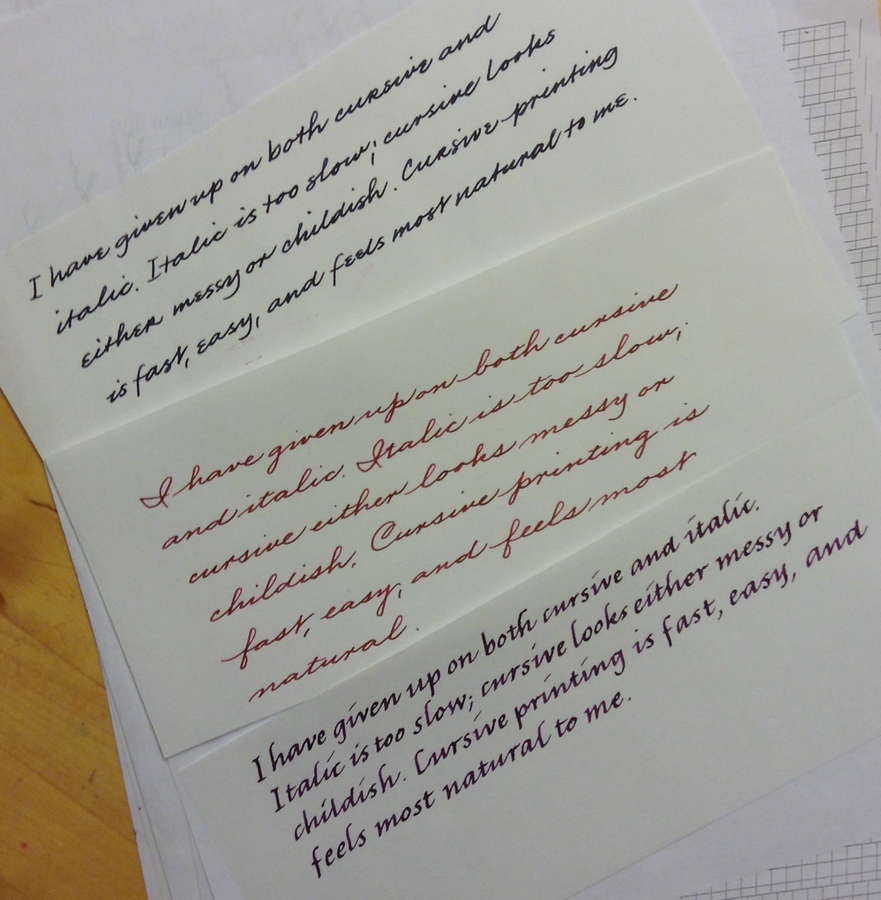 I have given up on both cursive and
italic. Italic is too slow; cursive looks
either messy or childish. Cursive printing
is fast, easy, and feels most natural to me.
I have given up on both cursive
and italic. Italic is too slow;
cursive either looks messy or
childish. Cursive printing is
fast, easy, and feels most
natural.
I have given up on both cursive and italic.
Italic is too slow; cursive looks either messy or
childish. Cursive printing is fast, easy, and
feels most natural to me.